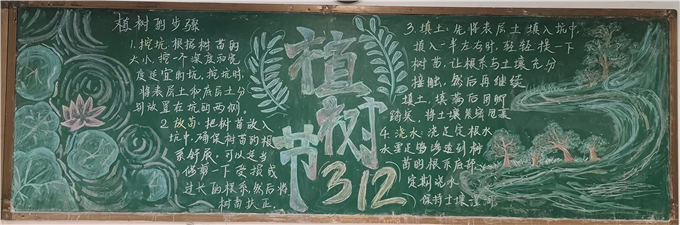 植树的步骤
1.挖坑.根据树苗的
大小.挖一个深度和宽
度适宜的坑.挖坑时,
将表层土和底层土分
别放置在坑的两侧,
2.放苗.把树苗放入
坑中,确保树苗的根
系舒展,可以适当
修剪一下受损或
过长的根系.然后将
树苗扶正.
植树节
312
3.填土.先将表层土填入坑中.
填入一半左右时,轻轻提一下
树苗.让根系与土壤充分
接触,然后再继续
填土.填满后用脚
踏实,将土壤
4.浇水.浇足定根水
水量足够渗透到树
苗的根系底部.
定期浇水
保持土壤湿润